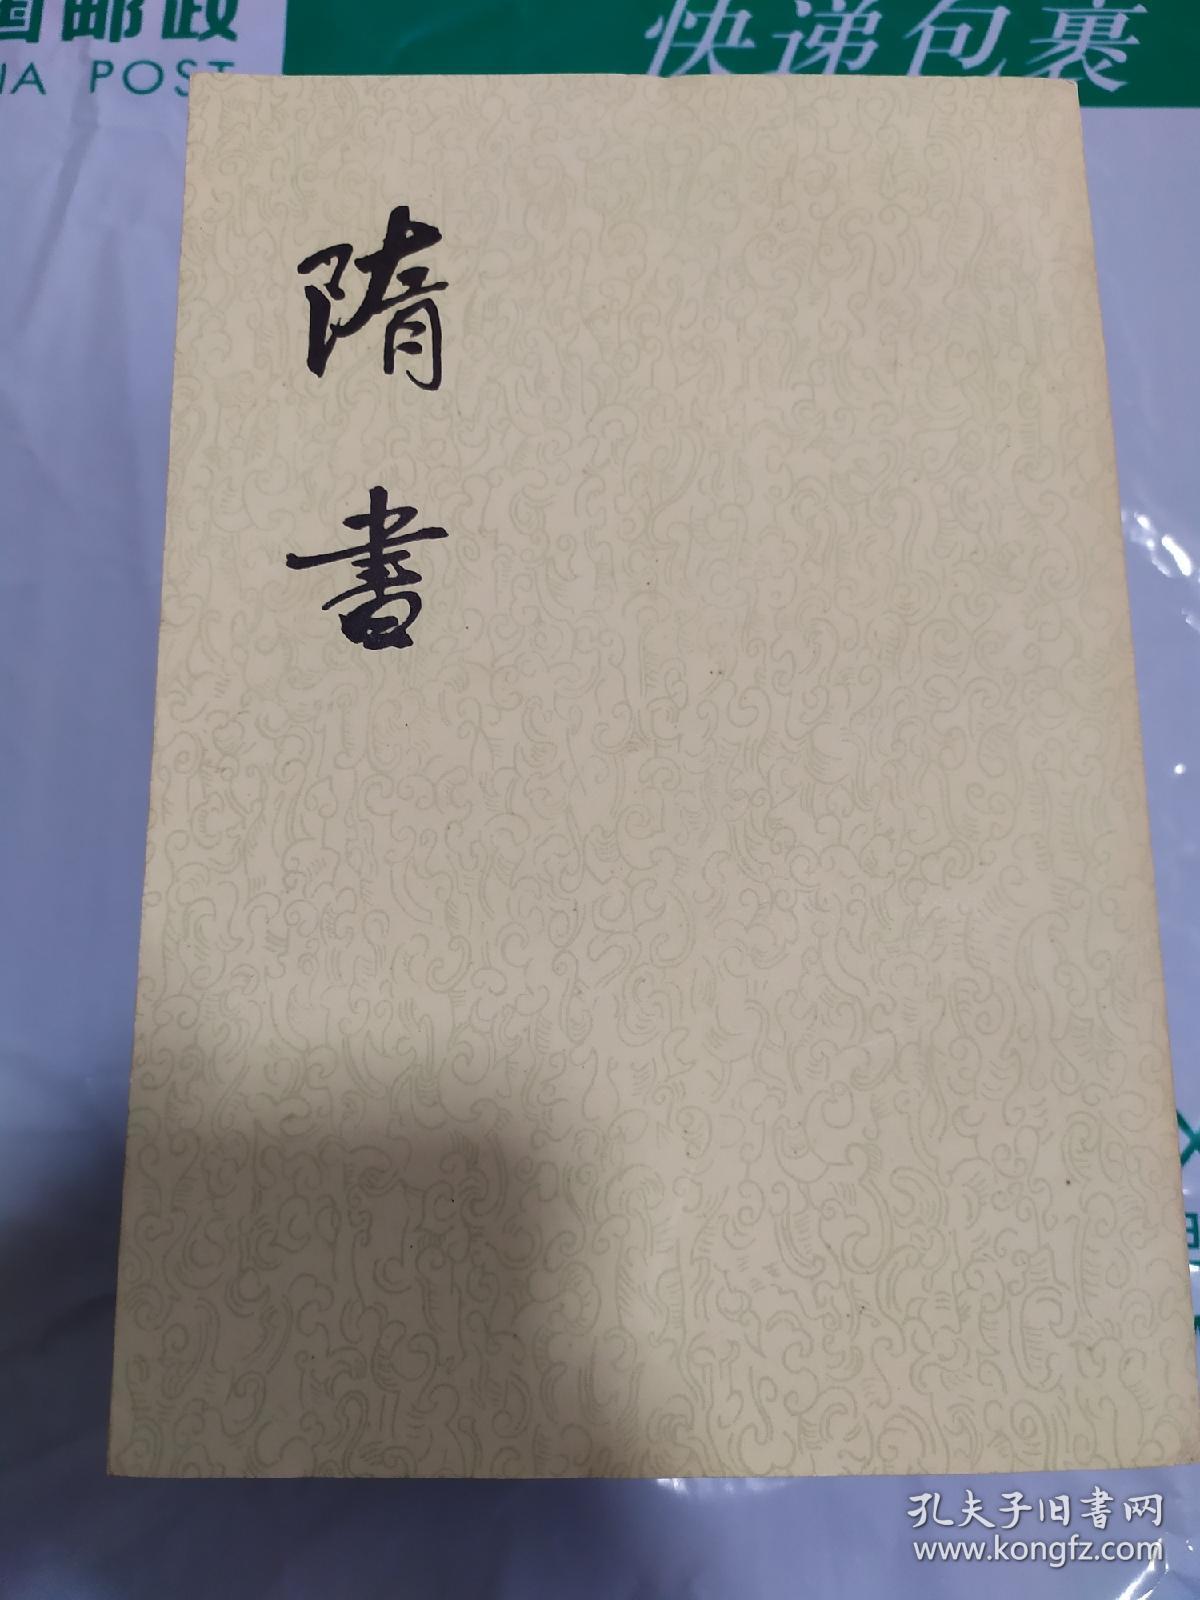 国邮政
NA POST
快递包裹
隋
書
孔夫子旧书网
www.kongfz.com